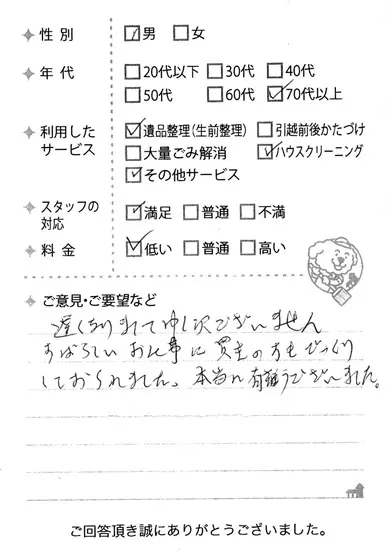 性別 ☑男 ☐女
年代 ☐20代以下 ☐30代 ☐40代
☐50代 ☐60代 ☑70代以上
利用したサービス ☑遺品整理(生前整理) ☐引越前後かたづけ
☐大量ごみ解消 ☑ハウスクリーニング
☑その他サービス
スタッフの対応 ☑満足 ☐普通 ☐不満
料金 ☑低い ☐普通 ☐高い
ご意見・ご要望など
遅くなりまして申し訳ございません
すばらしいお仕事に買主の方もびっくり
しておられました。本当に有難うございました。
ご回答頂き誠にありがとうございました。